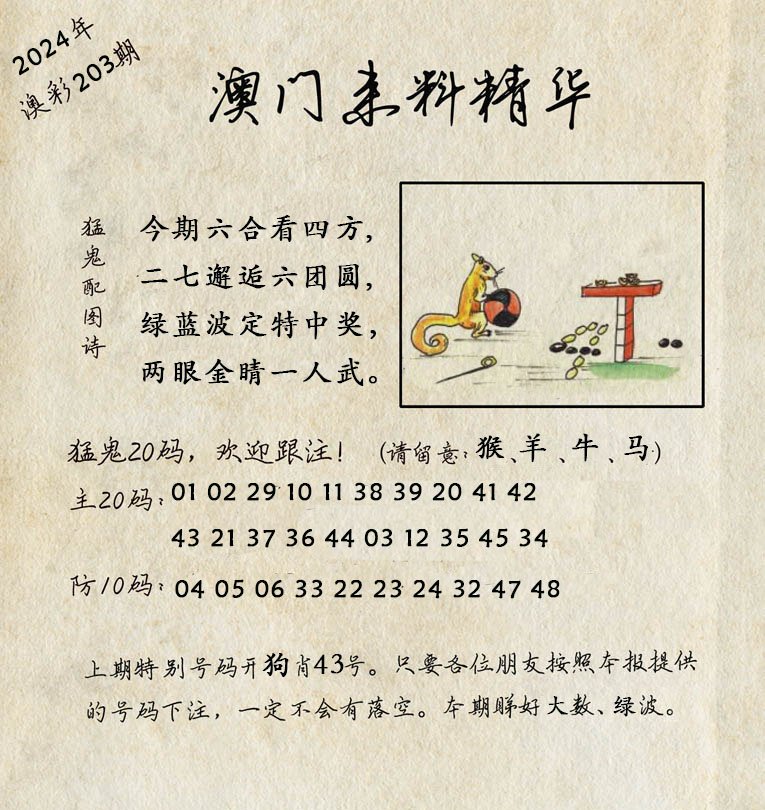 2024年
澳彩203期
澳门来料精华
猛鬼配图诗
今期六合看四方,
二七邂逅六团圆,
绿蓝波定特中奖,
两眼金睛一人武。
猛鬼20码，欢迎跟注！(请留意：猴、羊、牛、马)
主20码：01 02 29 10 11 38 39 20 41 42
43 21 37 36 44 03 12 35 45 34
防10码：04 05 06 33 22 23 24 32 47 48
上期特别号码开狗肖43号。只要各位朋友按照本报提供
的号码下注，一定不会有落空。本期睇好大数、绿波。